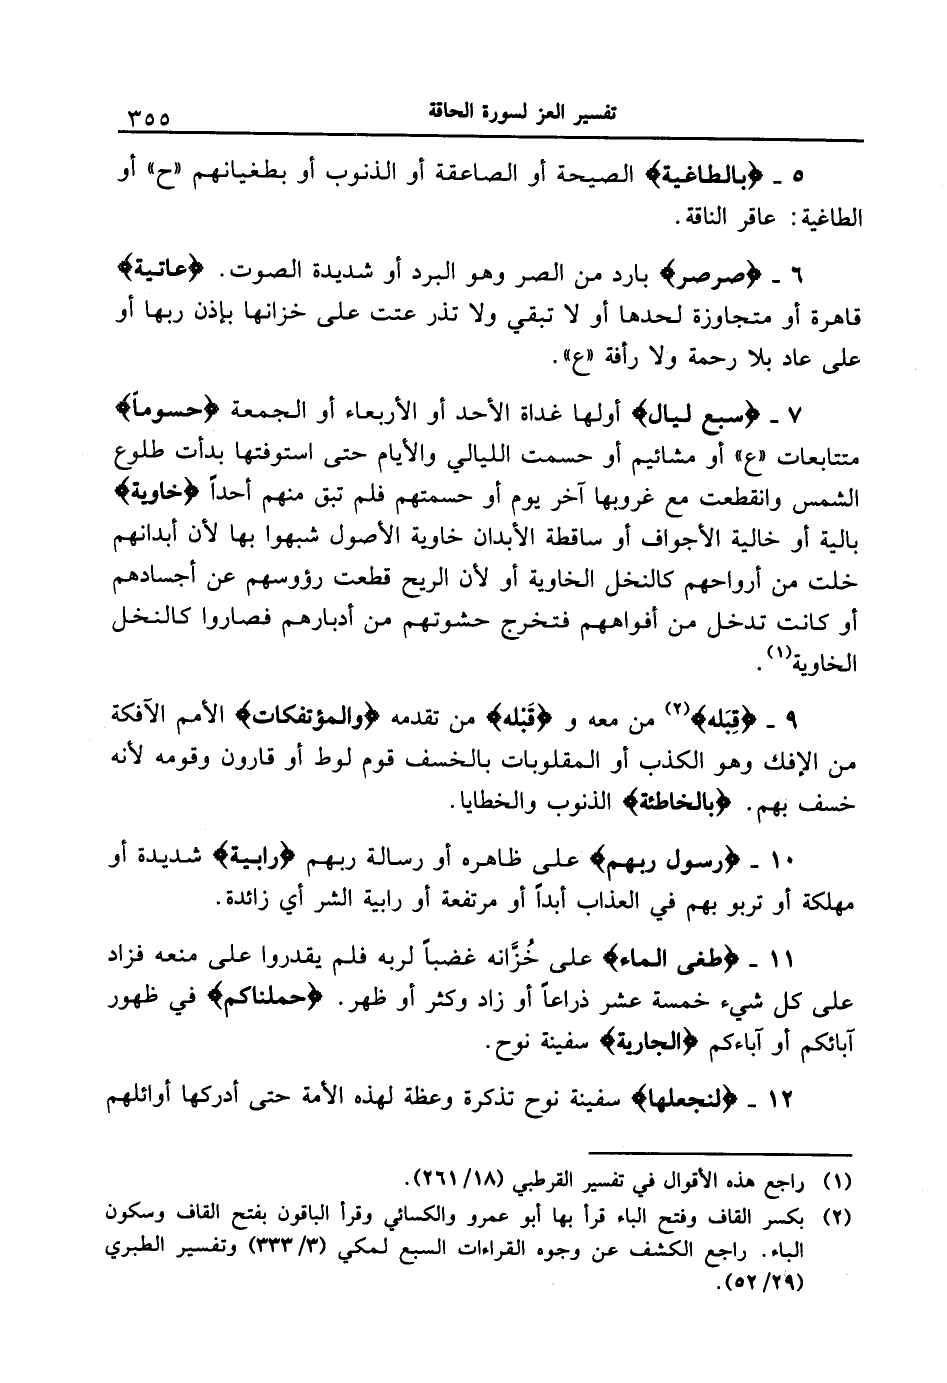 تفسير العز لسورة الحاقة ٣٥٥
٥ ـ ﴿بالطاغية﴾ الصيحة أو الصاعقة أو الذنوب أو بطغيانهم «ح» أو
الطاغية: عاقر الناقة.
٦ ـ ﴿صرصر﴾ بارد من الصر وهو البرد أو شديدة الصوت. ﴿عاتية﴾
قاهرة أو متجاوزة لحدها أو لا تبقي ولا تذر عتت على خزانها بإذن ربها أو
على عاد بلا رحمة ولا رأفة «ع».
٧ ـ ﴿سبع ليال﴾ أولها غداة الأحد أو الأربعاء أو الجمعة ﴿حسوماً﴾
متتابعات «ع» أو مشائيم أو حسمت الليالي والأيام حتى استوفتها بدأت طلوع
الشمس وانقطعت مع غروبها آخر يوم أو حسمتهم فلم تبق منهم أحداً ﴿خاوية﴾
بالية أو خالية الأجواف أو ساقطة الأبدان خاوية الأصول شبهوا بها لأن أبدانهم
خلت من أرواحهم كالنخل الخاوية أو لأن الريح قطعت رؤوسهم عن أجسادهم
أو كانت تدخل من أفواههم فتخرج حشوتهم من أدبارهم فصاروا كالنخل
الخاوية(١).
٩ ـ ﴿قِبَله﴾(٢) من معه و ﴿قَبْله﴾ من تقدمه ﴿والمؤتفكات﴾ الأمم الآفكة
من الإفك وهو الكذب أو المقلوبات بالخسف قوم لوط أو قارون وقومه لأنه
خسف بهم. ﴿بالخاطئة﴾ الذنوب والخطايا.
١٠ ـ ﴿رسول ربهم﴾ على ظاهره أو رسالة ربهم ﴿رابية﴾ شديدة أو
مهلكة أو تربو بهم في العذاب أبداً أو مرتفعة أو رابية الشر أي زائدة.
١١ ـ ﴿طغى الماء﴾ على خُزَّانه غضباً لربه فلم يقدروا على منعه فزاد
على كل شيء خمسة عشر ذراعاً أو زاد وكثر أو ظهر. ﴿حملناكم﴾ في ظهور
آبائكم أو آباءكم ﴿الجارية﴾ سفينة نوح.
١٢ ـ ﴿لنجعلها﴾ سفينة نوح تذكرة وعظة لهذه الأمة حتى أدركها أوائلهم
(١) راجع هذه الأقوال في تفسير القرطبي (٢٦١/١٨).
(٢) بكسر القاف وفتح الباء قرأ بها أبو عمرو والكسائي وقرأ الباقون بفتح القاف وسكون
الباء. راجع الكشف عن وجوه القراءات السبع لمكي (٣٣٣/٣) وتفسير الطبري
(٥٢/٢٩).